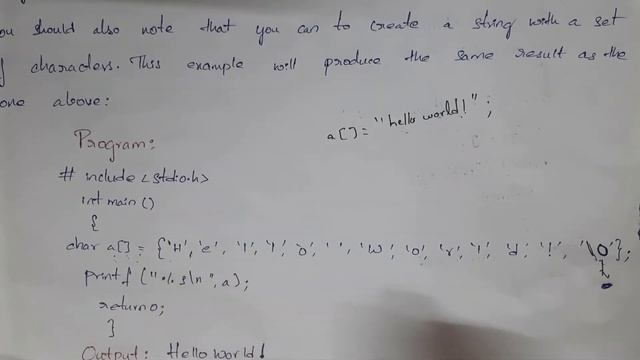 ou should also note that you can to create a string with a set
of characters. This example will produce the same result as the
one above:
a[] = "hello world!";
Program:
# include <stdio.h>
int main ()
{
char a[] = {'H','e','l','l','o',' ','w','o','r','l','d','!','\0'};
printf ("%s\n", a);
return 0;
}
Output: Hello world!